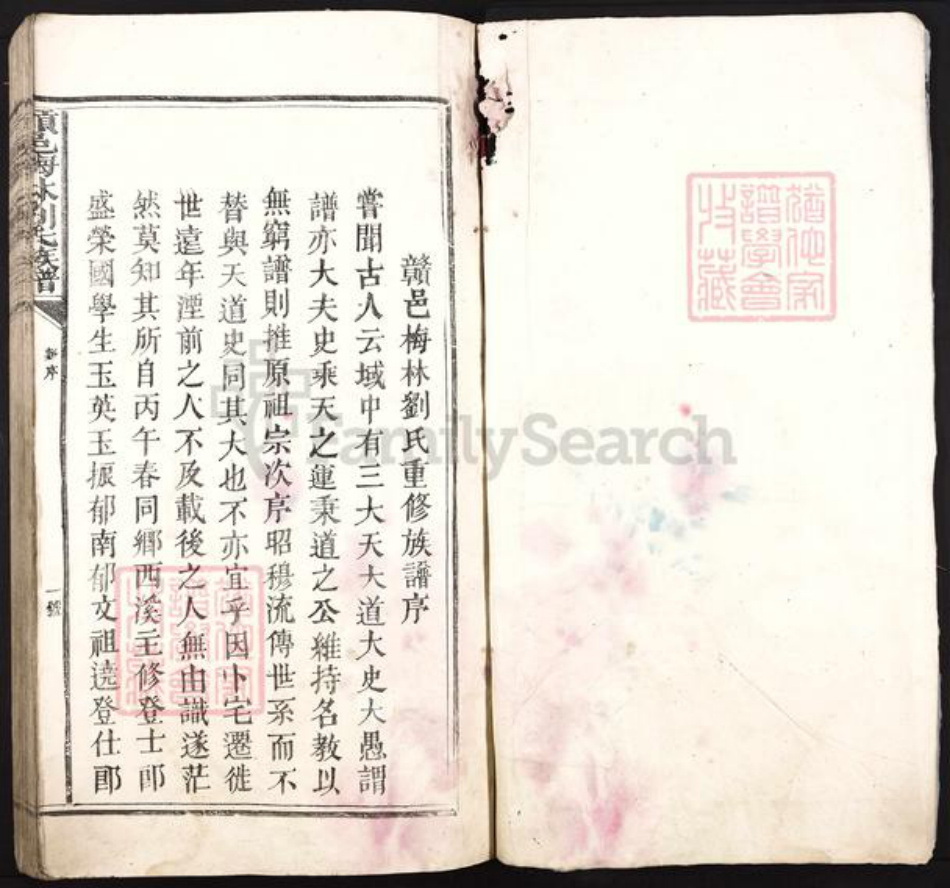 贛邑梅林劉氏重修族譜序
嘗聞古人云域中有三大天大道大史大愚謂
譜亦大夫史乘天之運秉道之公維持名教以
無窮譜則推原祖宗次序昭穆流傳世系而不
替與天道史同其大也不亦宜乎因卜宅遷徙
世遠年湮前之人不及載後之人無由識遂茫
然莫知其所自丙午春同鄉西溪主修登士郎
盛榮國學生玉英玉振郁南郁文祖遶登仕郎
贛邑梅林劉氏族譜
新序
一號
猶他家
譜學會
收藏
FamilySearch